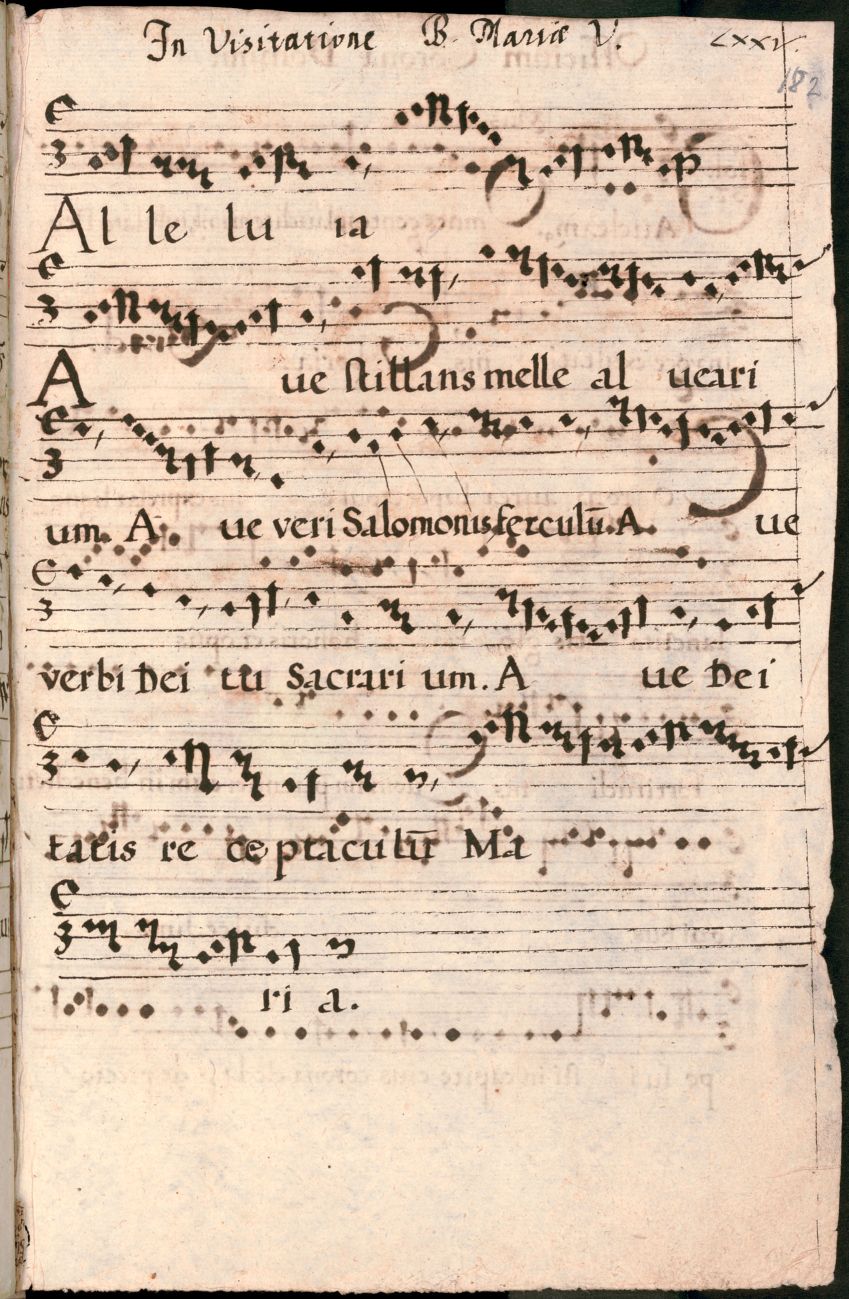 In Visitatione B. Mariæ V. LXXV.
182
Al le lu ia
A ue stillans melle al ueari
um. A. ue veri Salomonis ferculū. A. ue
verbi Dei tu Sacrari um. A ue Dei
tatis re ceptaculū Ma
ri a.